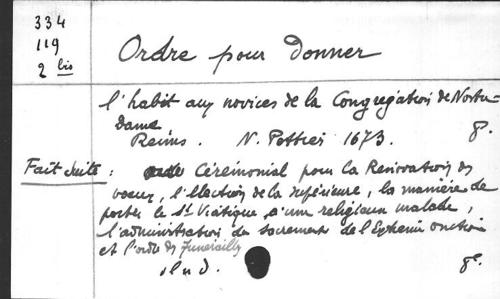 334
119
2 bis
Ordre pour donner
l'habit aux novices de la Congregation de Nostre-
Dame
Reims. N. Pottier 1673. 8°.
Fait suite : Cérémonial pour la Renovation des
voeux, l'élection de la supérieure, la manière de
porter le St Viatique a une religieuse malade,
l'administration du sacrement de l'Extreme onction
et l'ordre des funerailles
s.l.n.d. 8°.